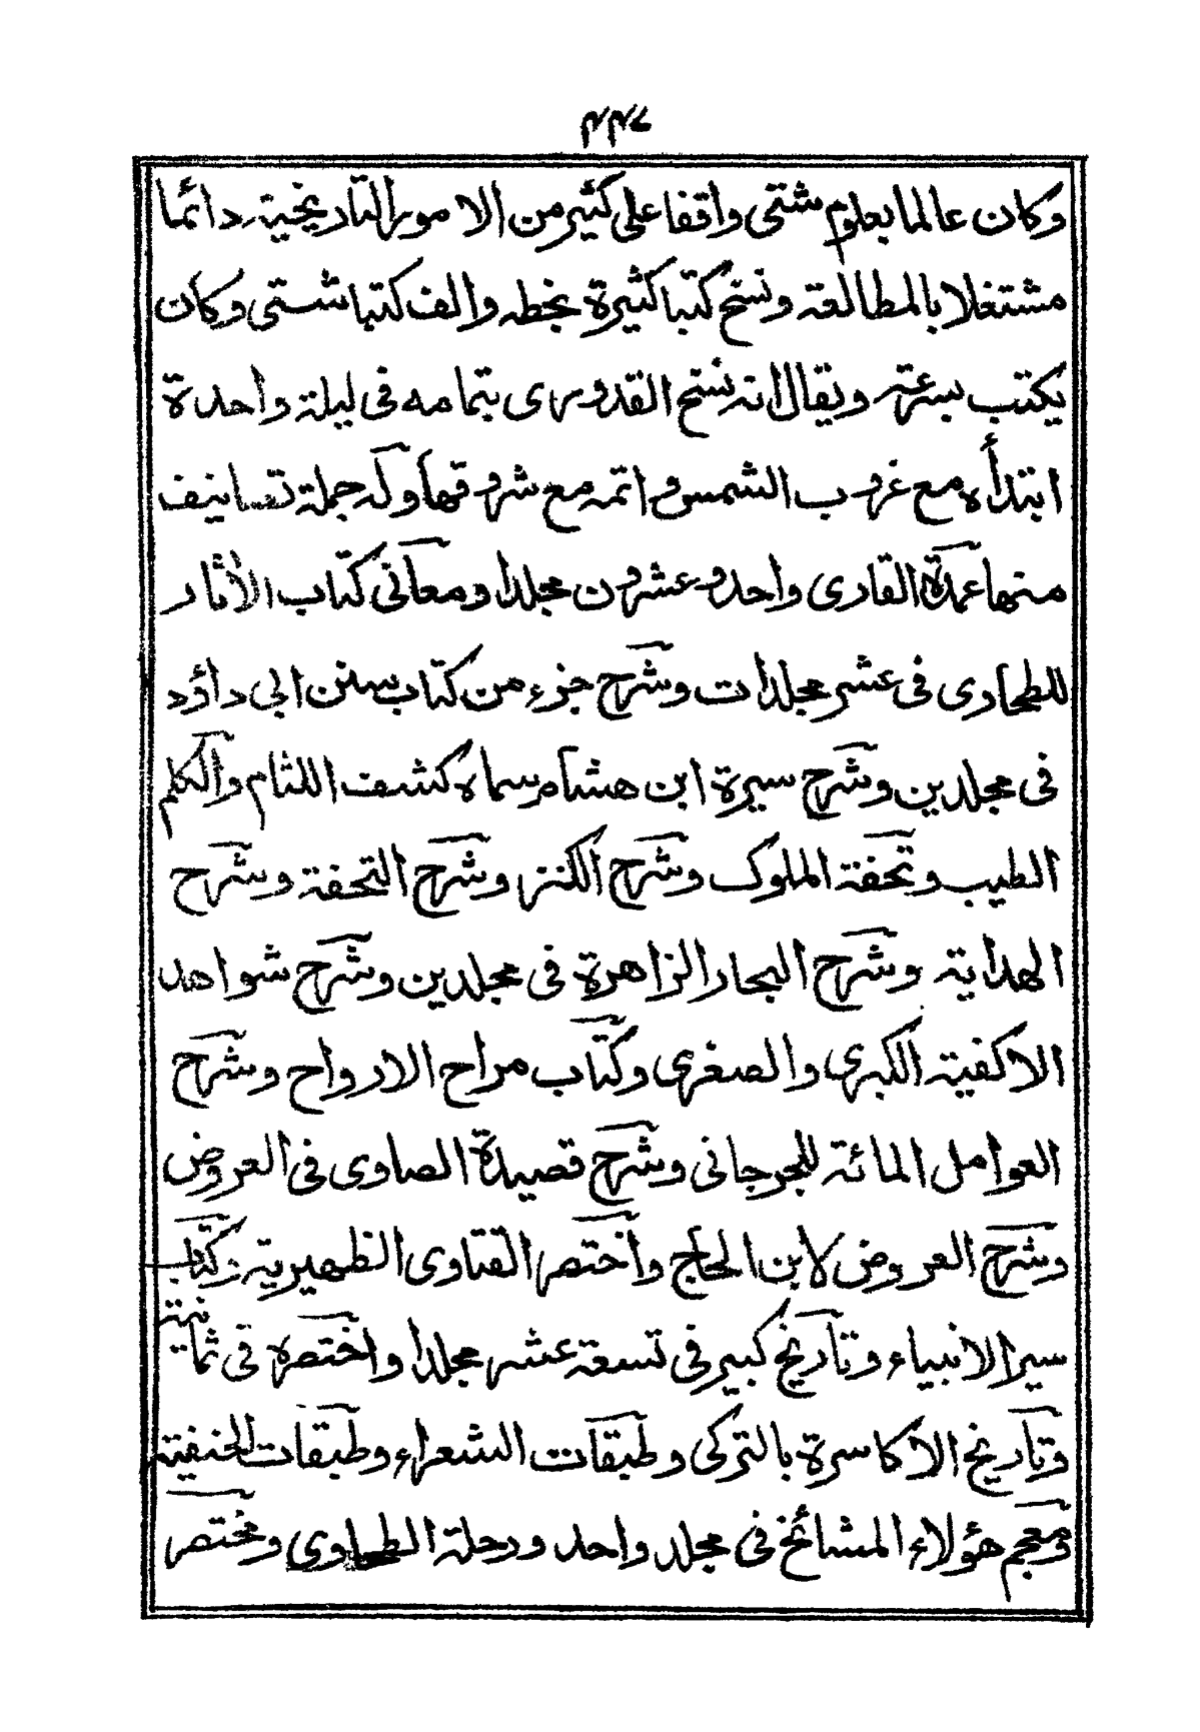 ٤٤٦
وكان عالما بعلوم شتى واقفا على كثير من الامور التاريخية دائما
مشتغلا بالمطالعة ونسخ كتبا كثيرة بخطه والف كتبا شتى وكان
يكتب بسرعة ويقال انه نسخ القدوري بتمامه فى ليلة واحدة
ابتدأه مع غروب الشمس واتمه مع شروقها وله جملة تصانيف
منها عمدة القارى واحد وعشرون مجلدا ومعانى كتاب الآثار
للطحاوى فى عشر مجلدات وشرح جزء من كتاب سنن ابي داؤد
فى مجلدين وشرح سيرة ابن هشام سماه كشف اللثام والكلم
الطيب وتحفة الملوك وشرح الكنز وشرح التحفة وشرح
الهداية وشرح البحار الزاهرة فى مجلدين وشرح شواهد
الاكفية الكبرى والصغرى وكتاب مراح الارواح وشرح
العوامل المائة للجرجانى وشرح قصيدة الصاوى فى العروض
وشرح العروض لابن الحاجح واختصر الفتاوى الظهيرية وكتاب
سير الانبياء وتاريخ كبير فى تسعة عشر مجلدا واختصره فى ثمانية
وتاريخ الاكاسرة بالتركى وطبقات الشعراء وطبقات الحنفية
ومعجم هؤلاء المشائخ فى مجلد واحد ورحلة الطحاوي ومختصر